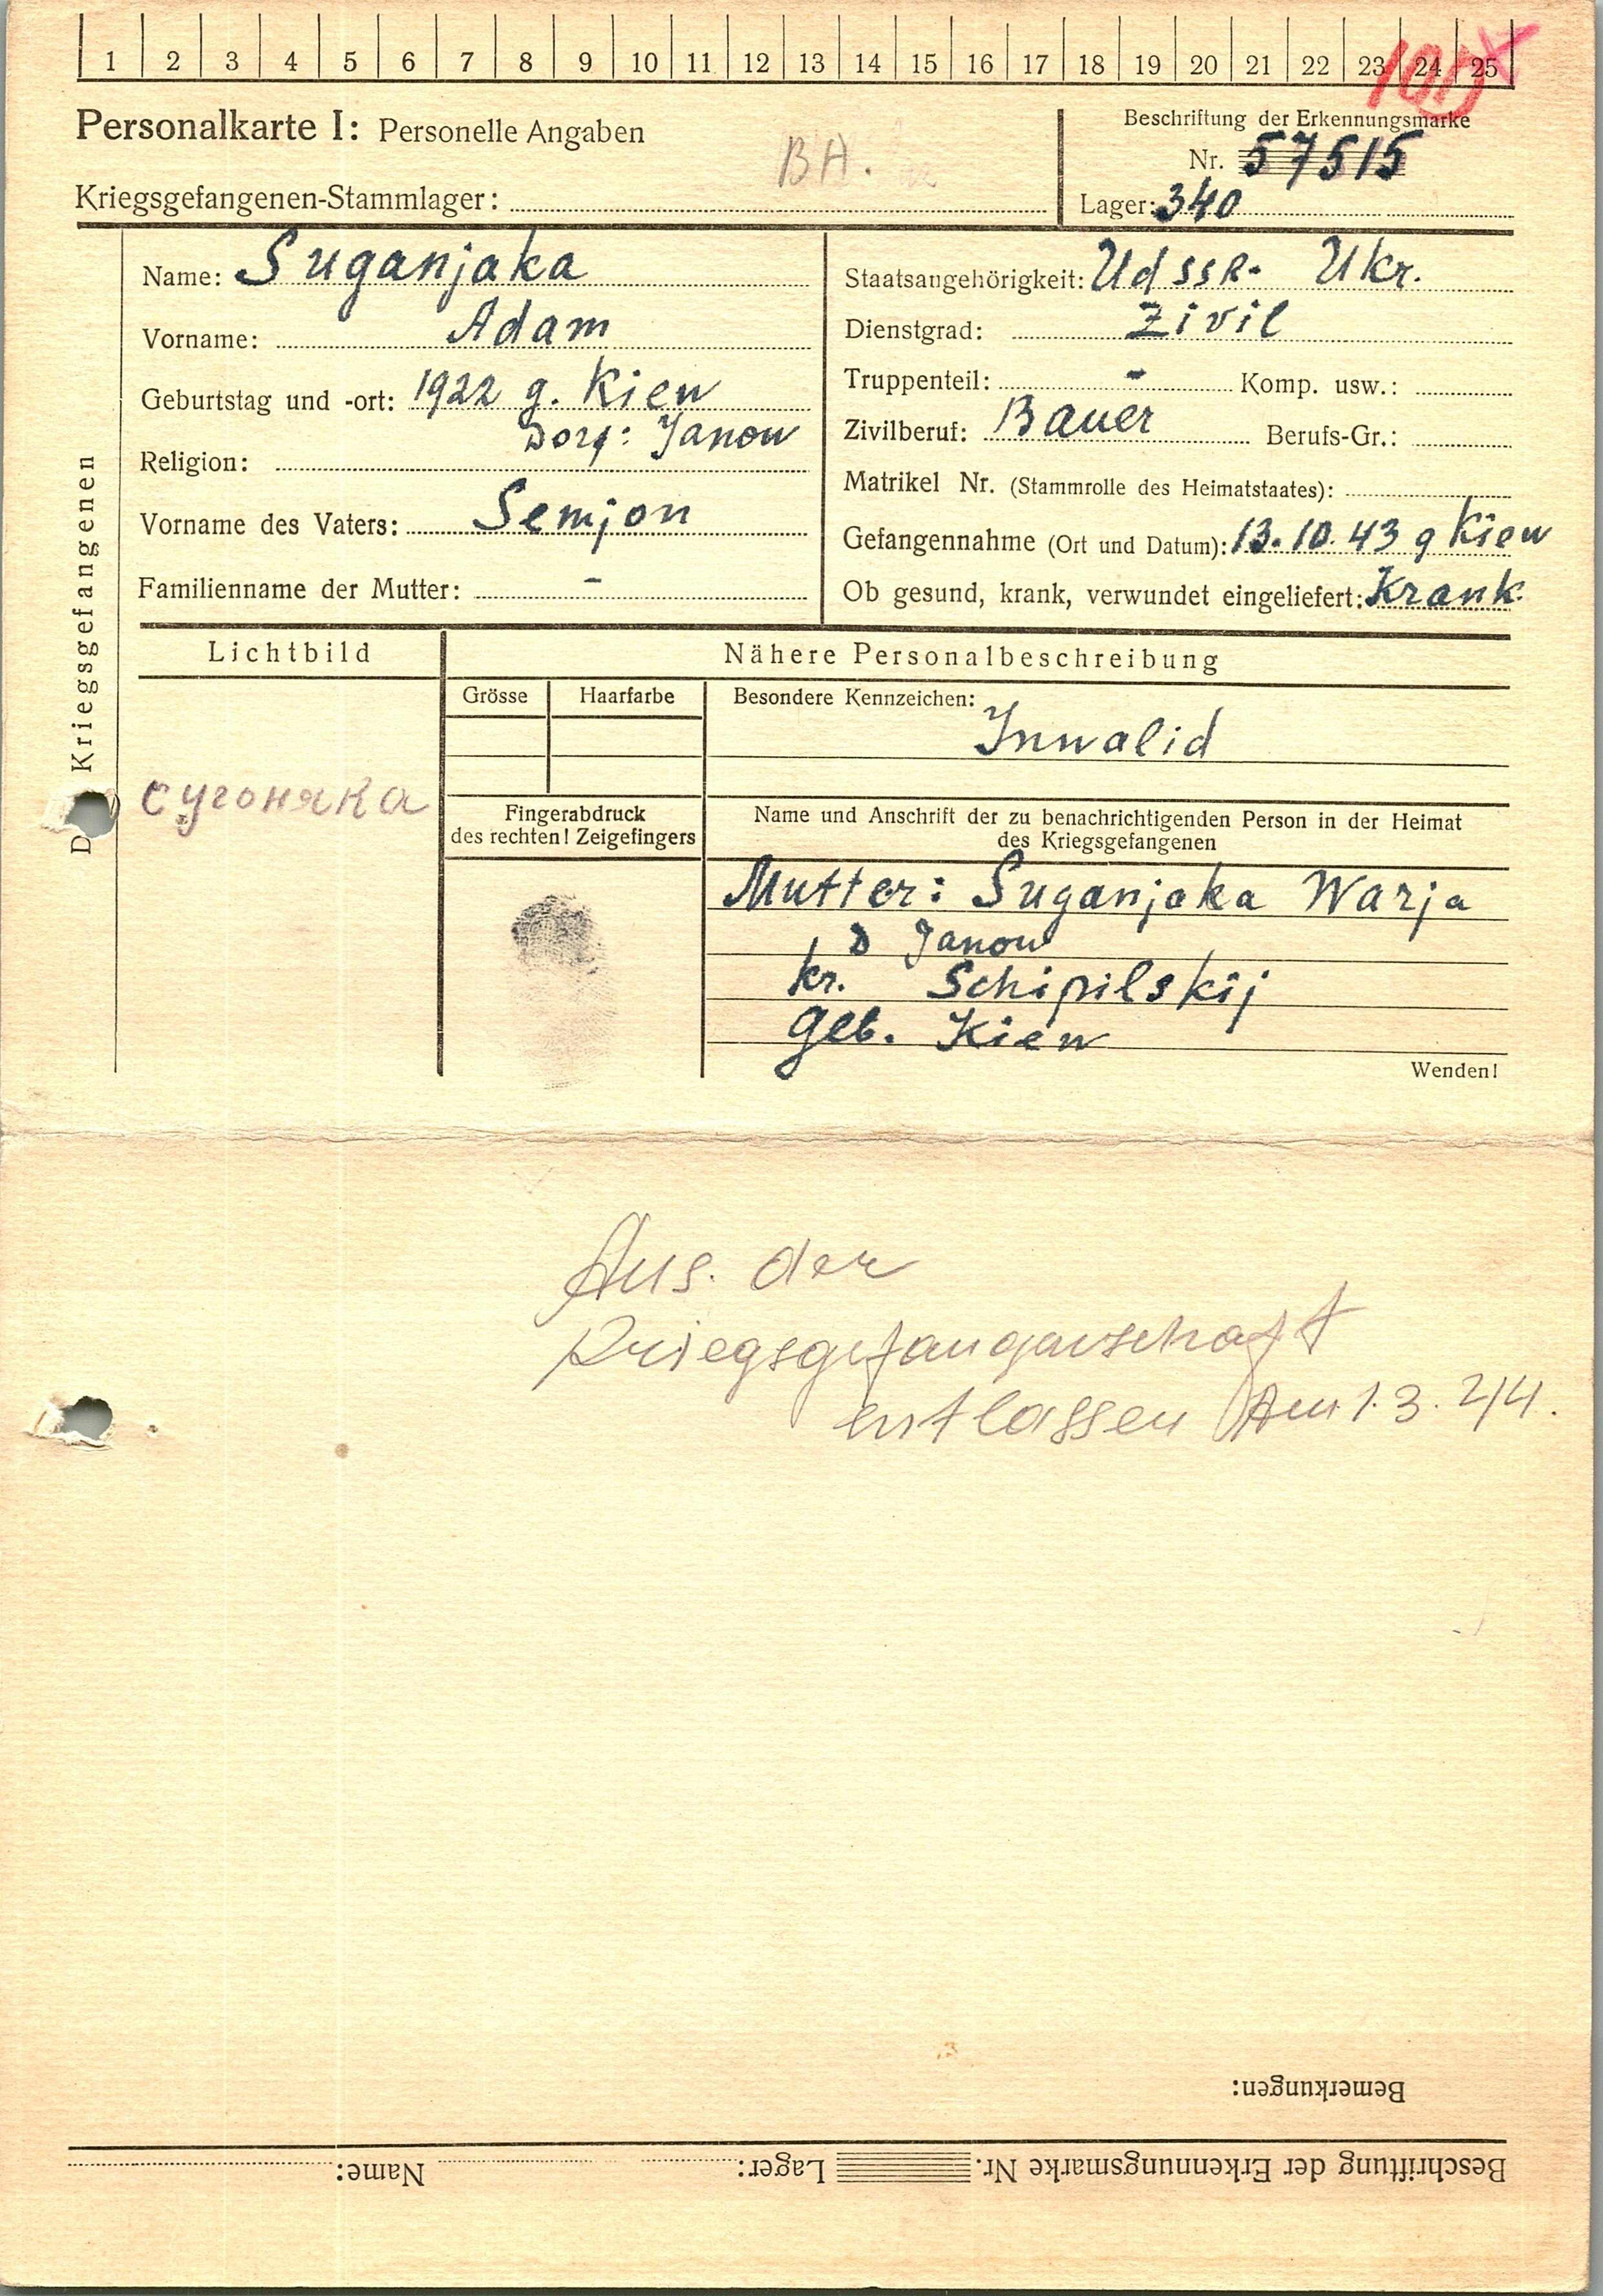 1 2 3 4 5 6 7 8 9 10 11 12 13 14 15 16 17 18 19 20 21 22 23 24 25
Personalkarte I: Personelle Angaben
BA.
Beschriftung der Erkennungsmarke
Nr. 57515
Kriegsgefangenen-Stammlager:
Lager: 340
Des Kriegsgefangenen
Name: Suganjaka
Vorname: Adam
Geburtstag und -ort: 1922 g. Kiew
Dorf: Janow
Religion:
Vorname des Vaters: Semjon
Familienname der Mutter: -
Staatsangehörigkeit: UdSSR. Ukr.
Dienstgrad: Zivil
Truppenteil: - Komp. usw.:
Zivilberuf: Bauer Berufs-Gr.:
Matrikel Nr. (Stammrolle des Heimatstaates):
Gefangennahme (Ort und Datum): 13.10.43 g Kiew
Ob gesund, krank, verwundet eingeliefert: Krank
Lichtbild
Nähere Personalbeschreibung
Grösse Haarfarbe
Besondere Kennzeichen:
Inwalid
Сугоняка
Fingerabdruck
des rechten! Zeigefingers
Name und Anschrift der zu benachrichtigenden Person in der Heimat
des Kriegsgefangenen
Mutter: Suganjaka Warja
D Janow
kr. Schipilskij
Geb. Kiew
Wenden!
Aus. der
Kriegsgefangenschaft
entlassen Am 1.3.44.
Bemerkungen:
Beschriftung der Erkennungsmarke Nr. Lager: Name: